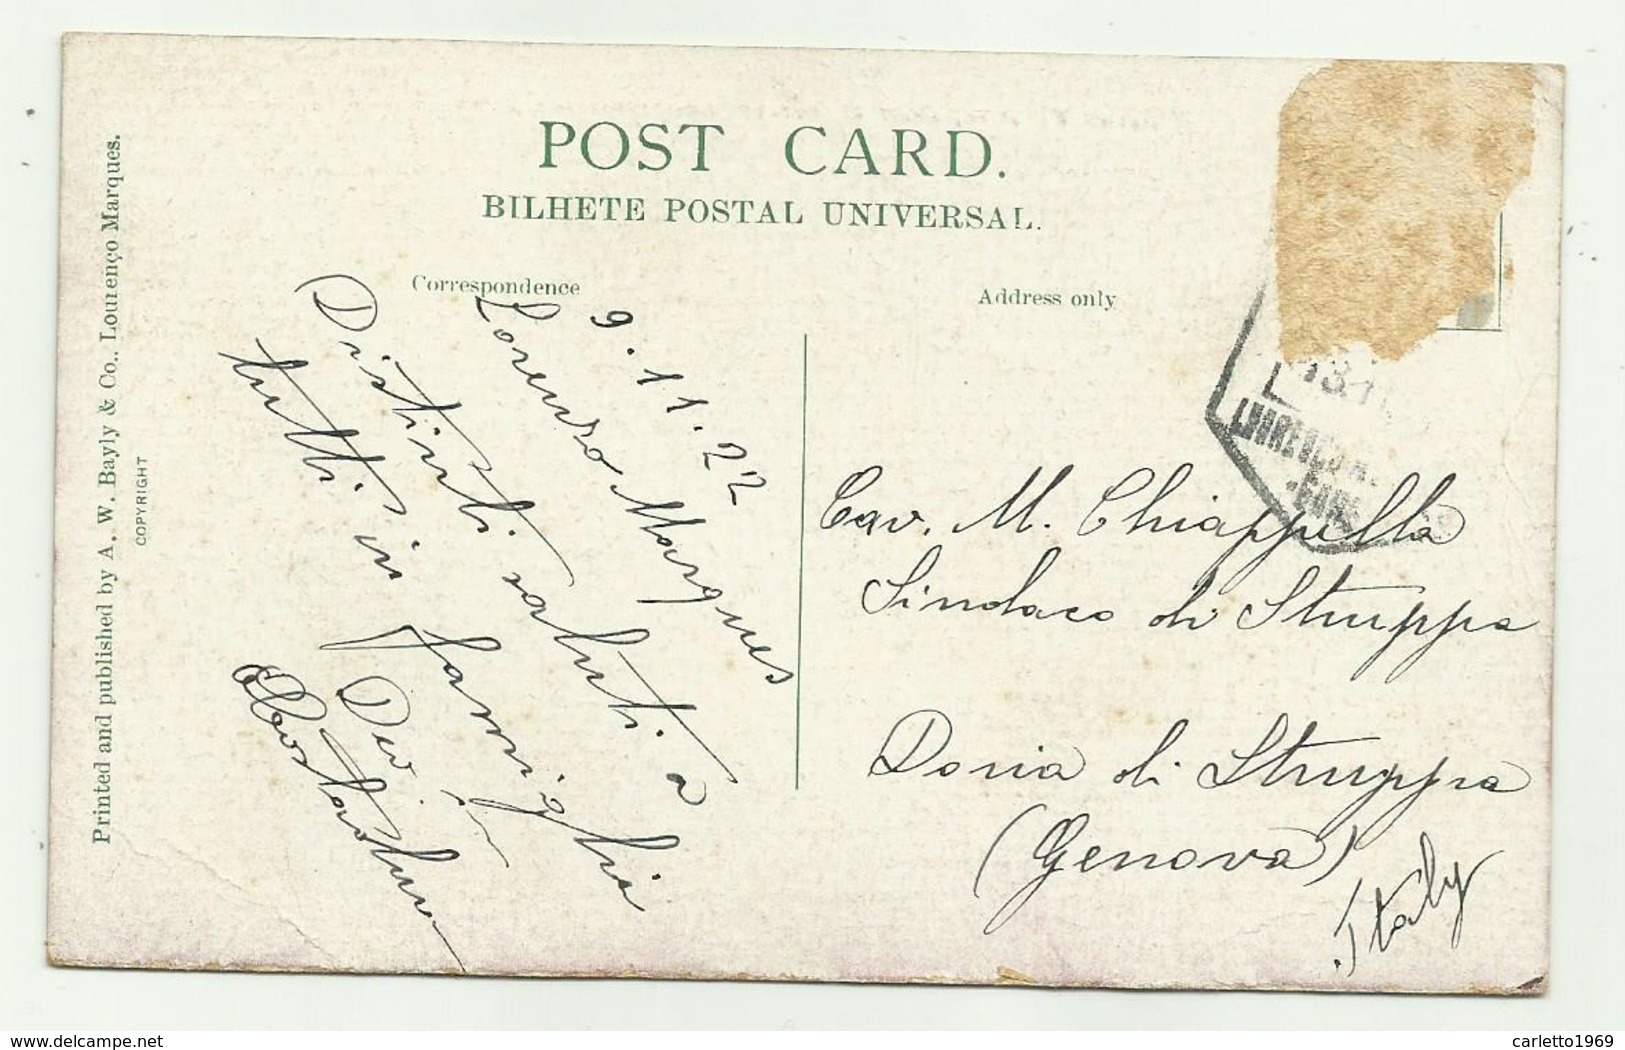 POST CARD.
BILHETE POSTAL UNIVERSAL.
Correspondence
Address only
9.11.22
Lorenzo Marques
Distinti saluti a
tutti in famiglia
Dev.
Cav. M. Chiappella
Sindaco di Struppa
Doria di Struppa
(Genova)
Italy
Printed and published by A. W. Bayly & Co., Lourenço Marques.
COPYRIGHT
www.delcampe.net
carletto1969